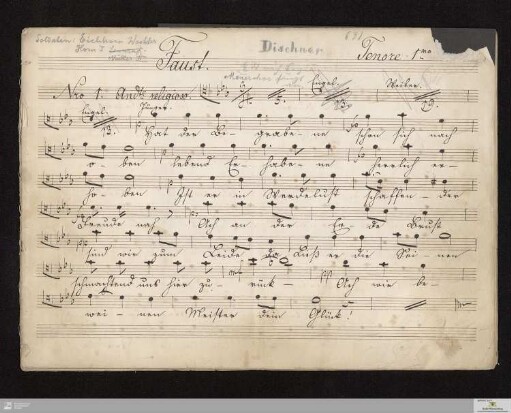 Solisten: Eichhorn Weixler
Dischner
691
Faust.
Tenore. 1mo
Engel. Weiber.
Nro 1. Andte religioso
Engel. Jünger.
13. Hat der Be- grabe- ne schon sich nach
o- ben lebend Er- habe- ne herrlich er-
ho- ben Ist er in Werdelust schaffen- der
Freude nah Ach an der Er- de Brust
sind wir zum Leide da Ließ er die Sei- nen
schmachtend uns hier zu- rück- Ach wir be-
wei- nen Meister dein Glück!